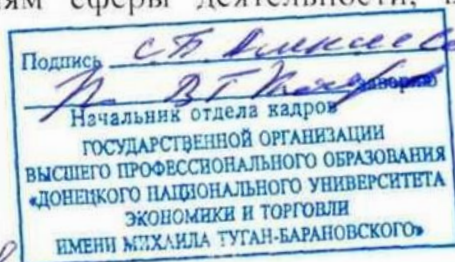 сферы деятельности,
Подпись
заверяю
Начальник отдела кадров
ГОСУДАРСТВЕННОЙ ОРГАНИЗАЦИИ
ВЫСШЕГО ПРОФЕССИОНАЛЬНОГО ОБРАЗОВАНИЯ
«ДОНЕЦКОГО НАЦИОНАЛЬНОГО УНИВЕРСИТЕТА
ЭКОНОМИКИ И ТОРГОВЛИ
ИМЕНИ МИХАИЛА ТУГАН-БАРАНОВСКОГО»